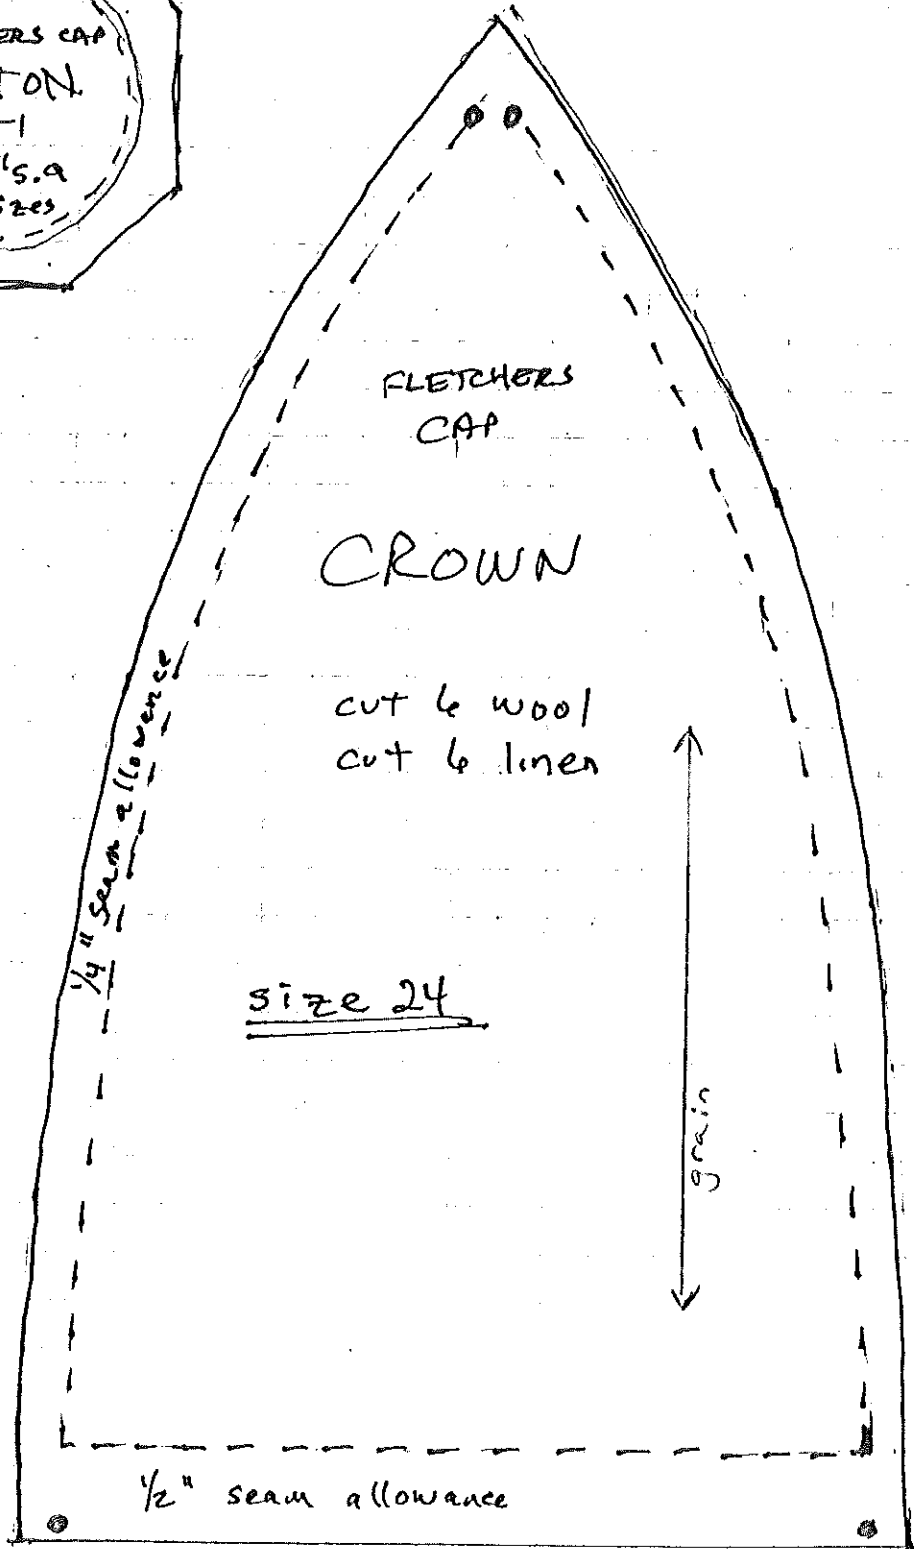 ERS CAP
TON
-1
"s.a
izes
FLETCHERS
CAP
CROWN
cut 6 wool
cut 6 linen
1/4" seam allowence
size 24
grain
1/2" seam allowance